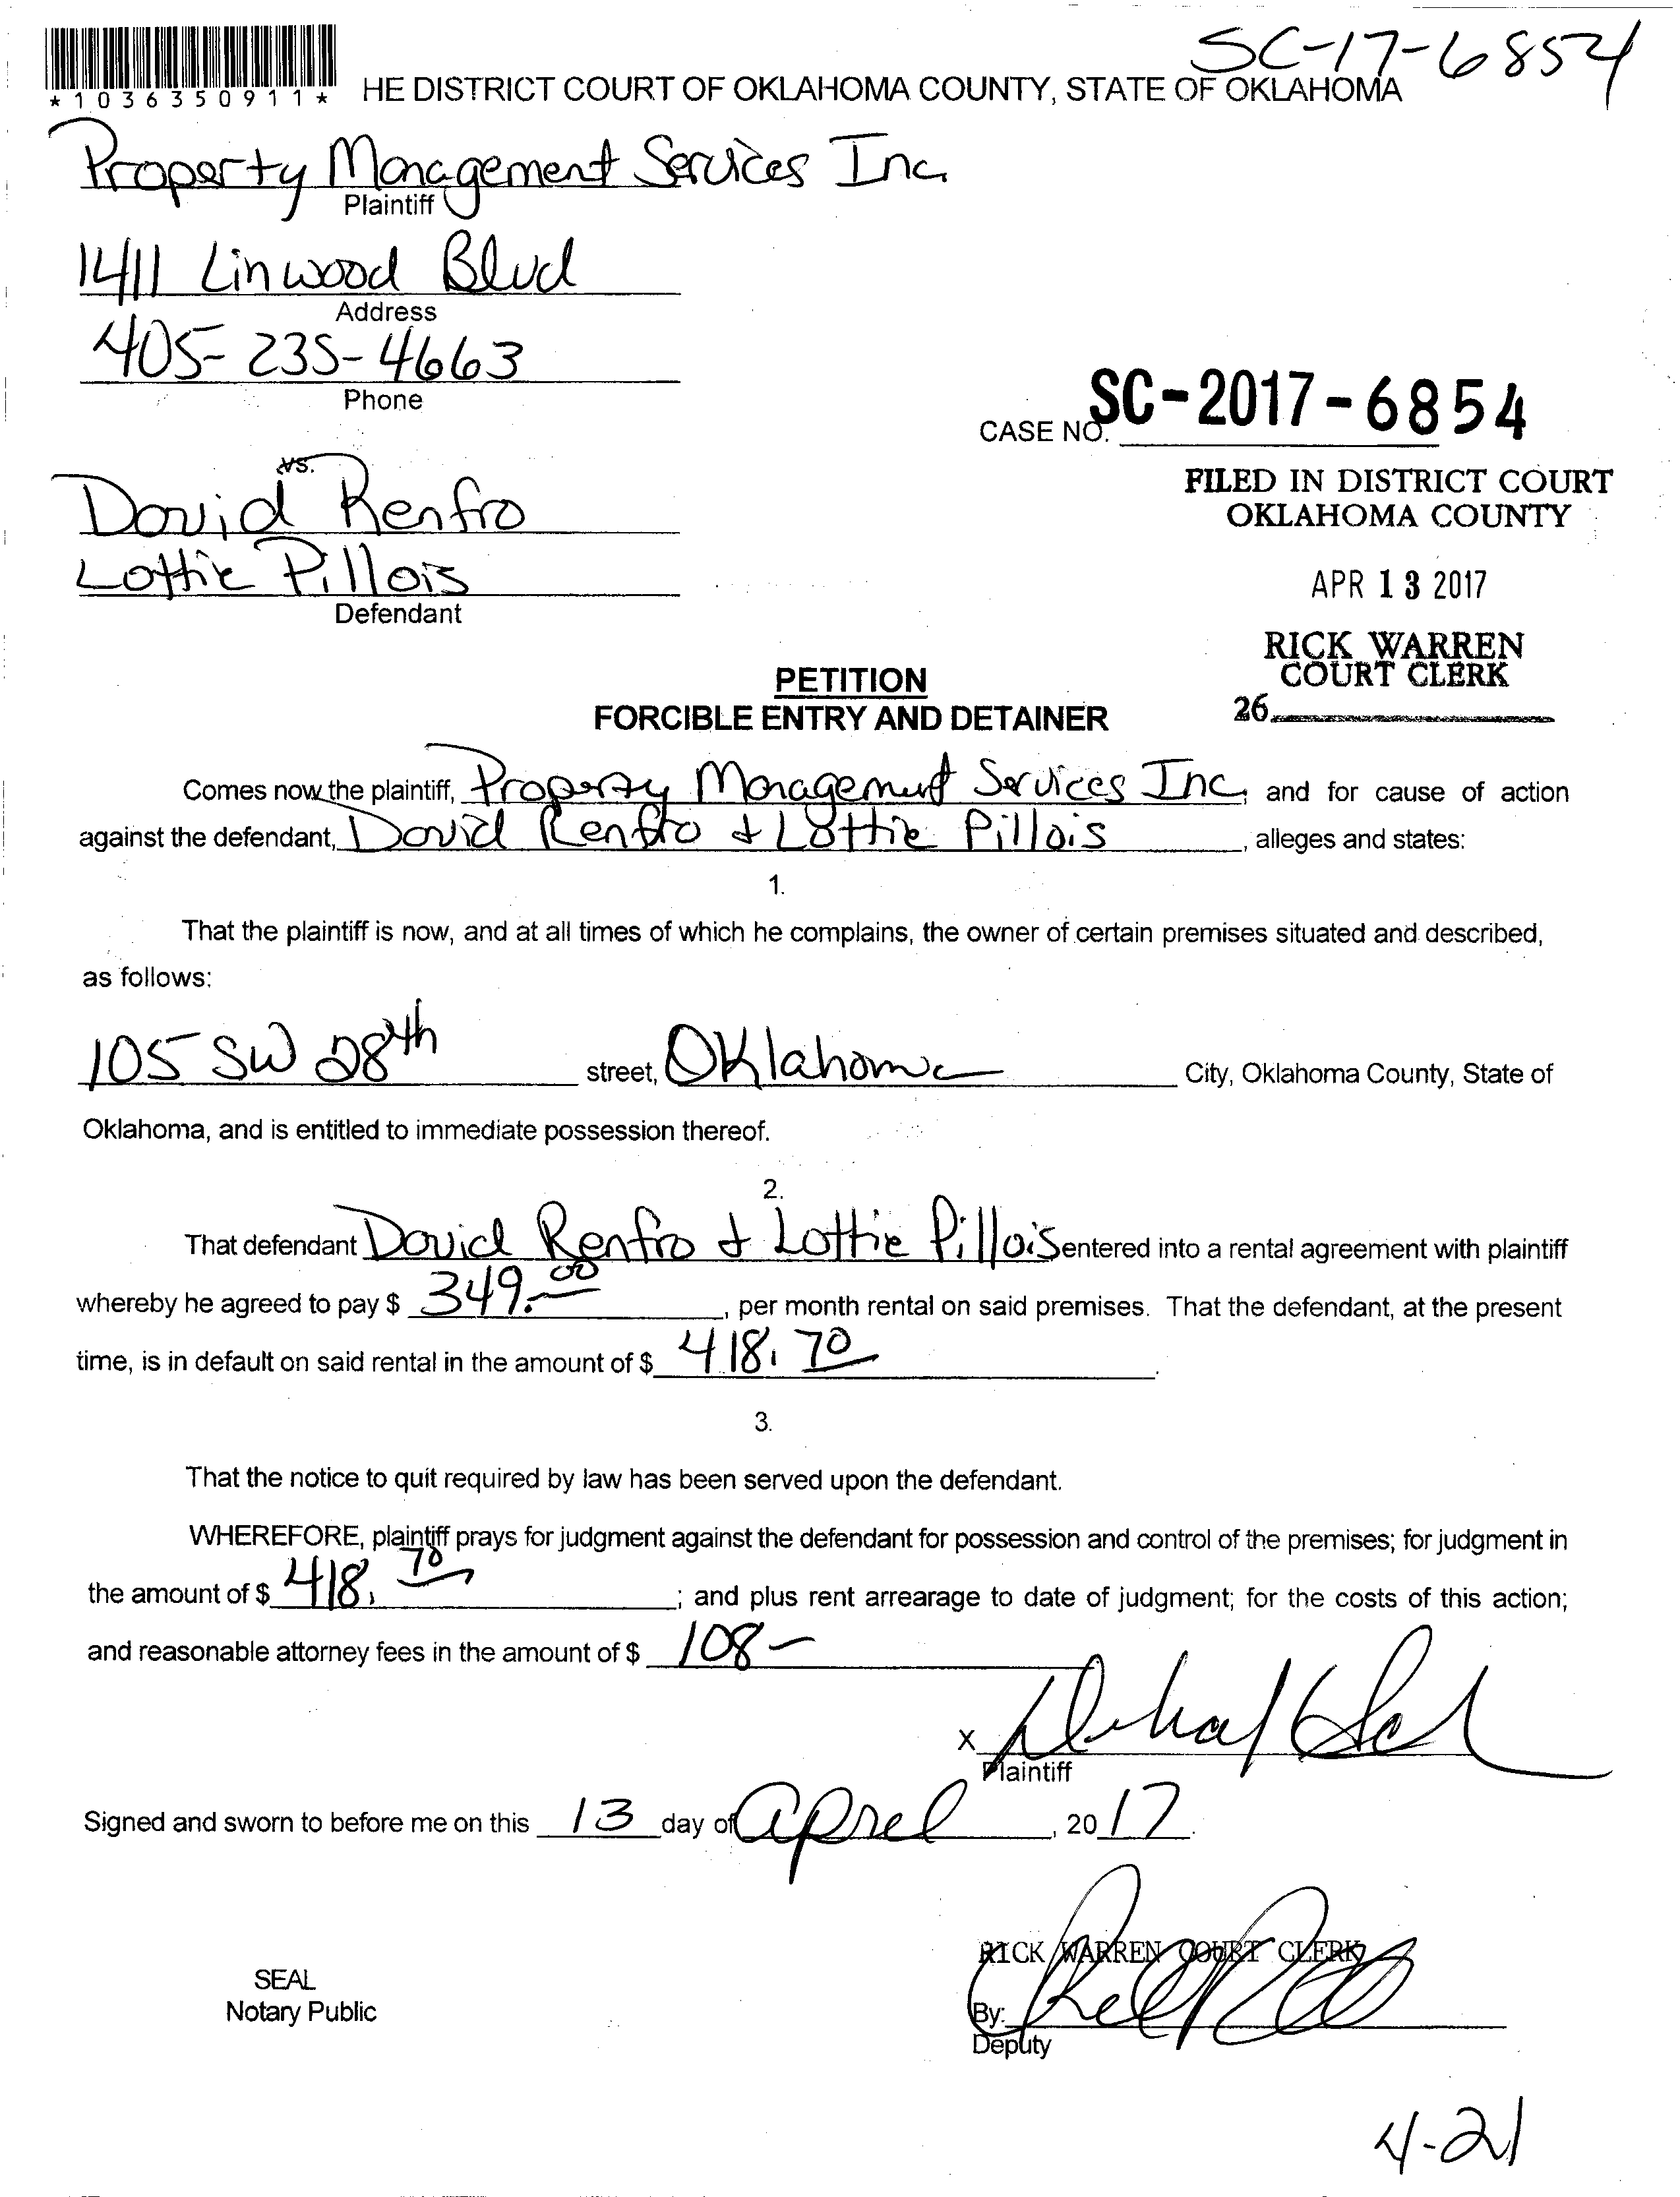 SC-17-6854
*1036350911*
HE DISTRICT COURT OF OKLAHOMA COUNTY, STATE OF OKLAHOMA
Property Management Services Inc.
Plaintiff
1411 Linwood Blvd
Address
405-235-4663
Phone
CASE NO. SC-2017-6854
vs.
FILED IN DISTRICT COURT
OKLAHOMA COUNTY
David Renfro
Lottie Pillois
Defendant
APR 13 2017
RICK WARREN
COURT CLERK
26
PETITION
FORCIBLE ENTRY AND DETAINER
Comes now the plaintiff, Property Management Services Inc, and for cause of action
against the defendant, David Renfro & Lottie Pillois, alleges and states:
1.
That the plaintiff is now, and at all times of which he complains, the owner of certain premises situated and described,
as follows:
105 SW 28th street, Oklahoma City, Oklahoma County, State of
Oklahoma, and is entitled to immediate possession thereof.
2.
That defendant David Renfro & Lottie Pillois entered into a rental agreement with plaintiff
whereby he agreed to pay $ 349.00, per month rental on said premises. That the defendant, at the present
time, is in default on said rental in the amount of $ 418.70.
3.
That the notice to quit required by law has been served upon the defendant.
WHEREFORE, plaintiff prays for judgment against the defendant for possession and control of the premises; for judgment in
the amount of $ 418.70; and plus rent arrearage to date of judgment; for the costs of this action;
and reasonable attorney fees in the amount of $ 108-
X
Plaintiff
Signed and sworn to before me on this 13 day of April, 2017.
RICK WARREN COURT CLERK
SEAL
Notary Public
By:
Deputy
4-21